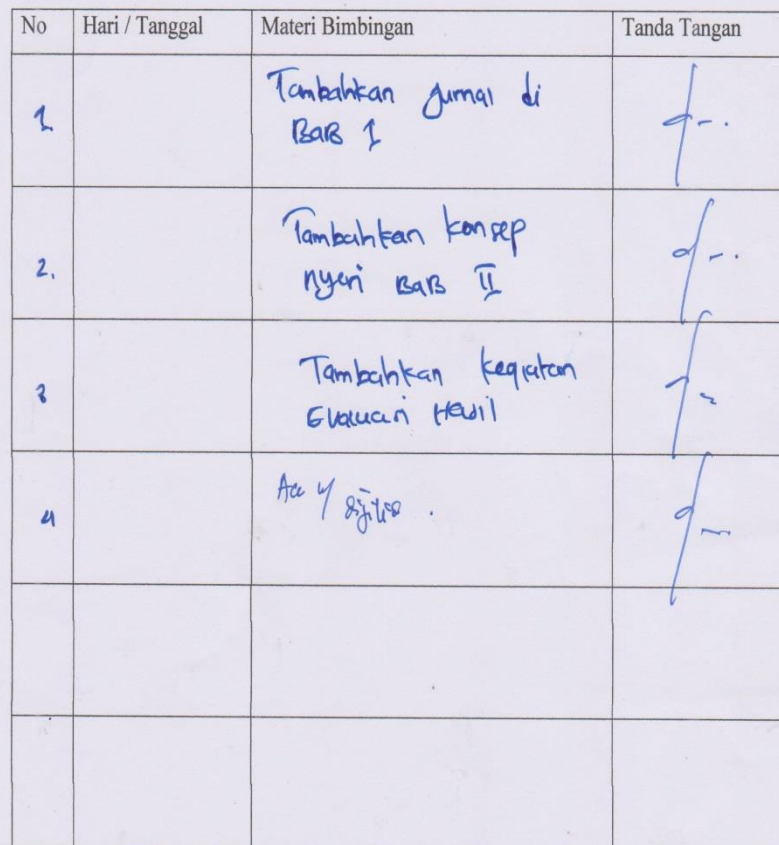 No Hari / Tanggal Materi Bimbingan Tanda Tangan
1. Tambahkan Jurnal di
BAB 1
2. Tambahkan konsep
nyeri BAB II
3 Tambahkan kegiatan
Evaluasi Hasil
4 Acc u/